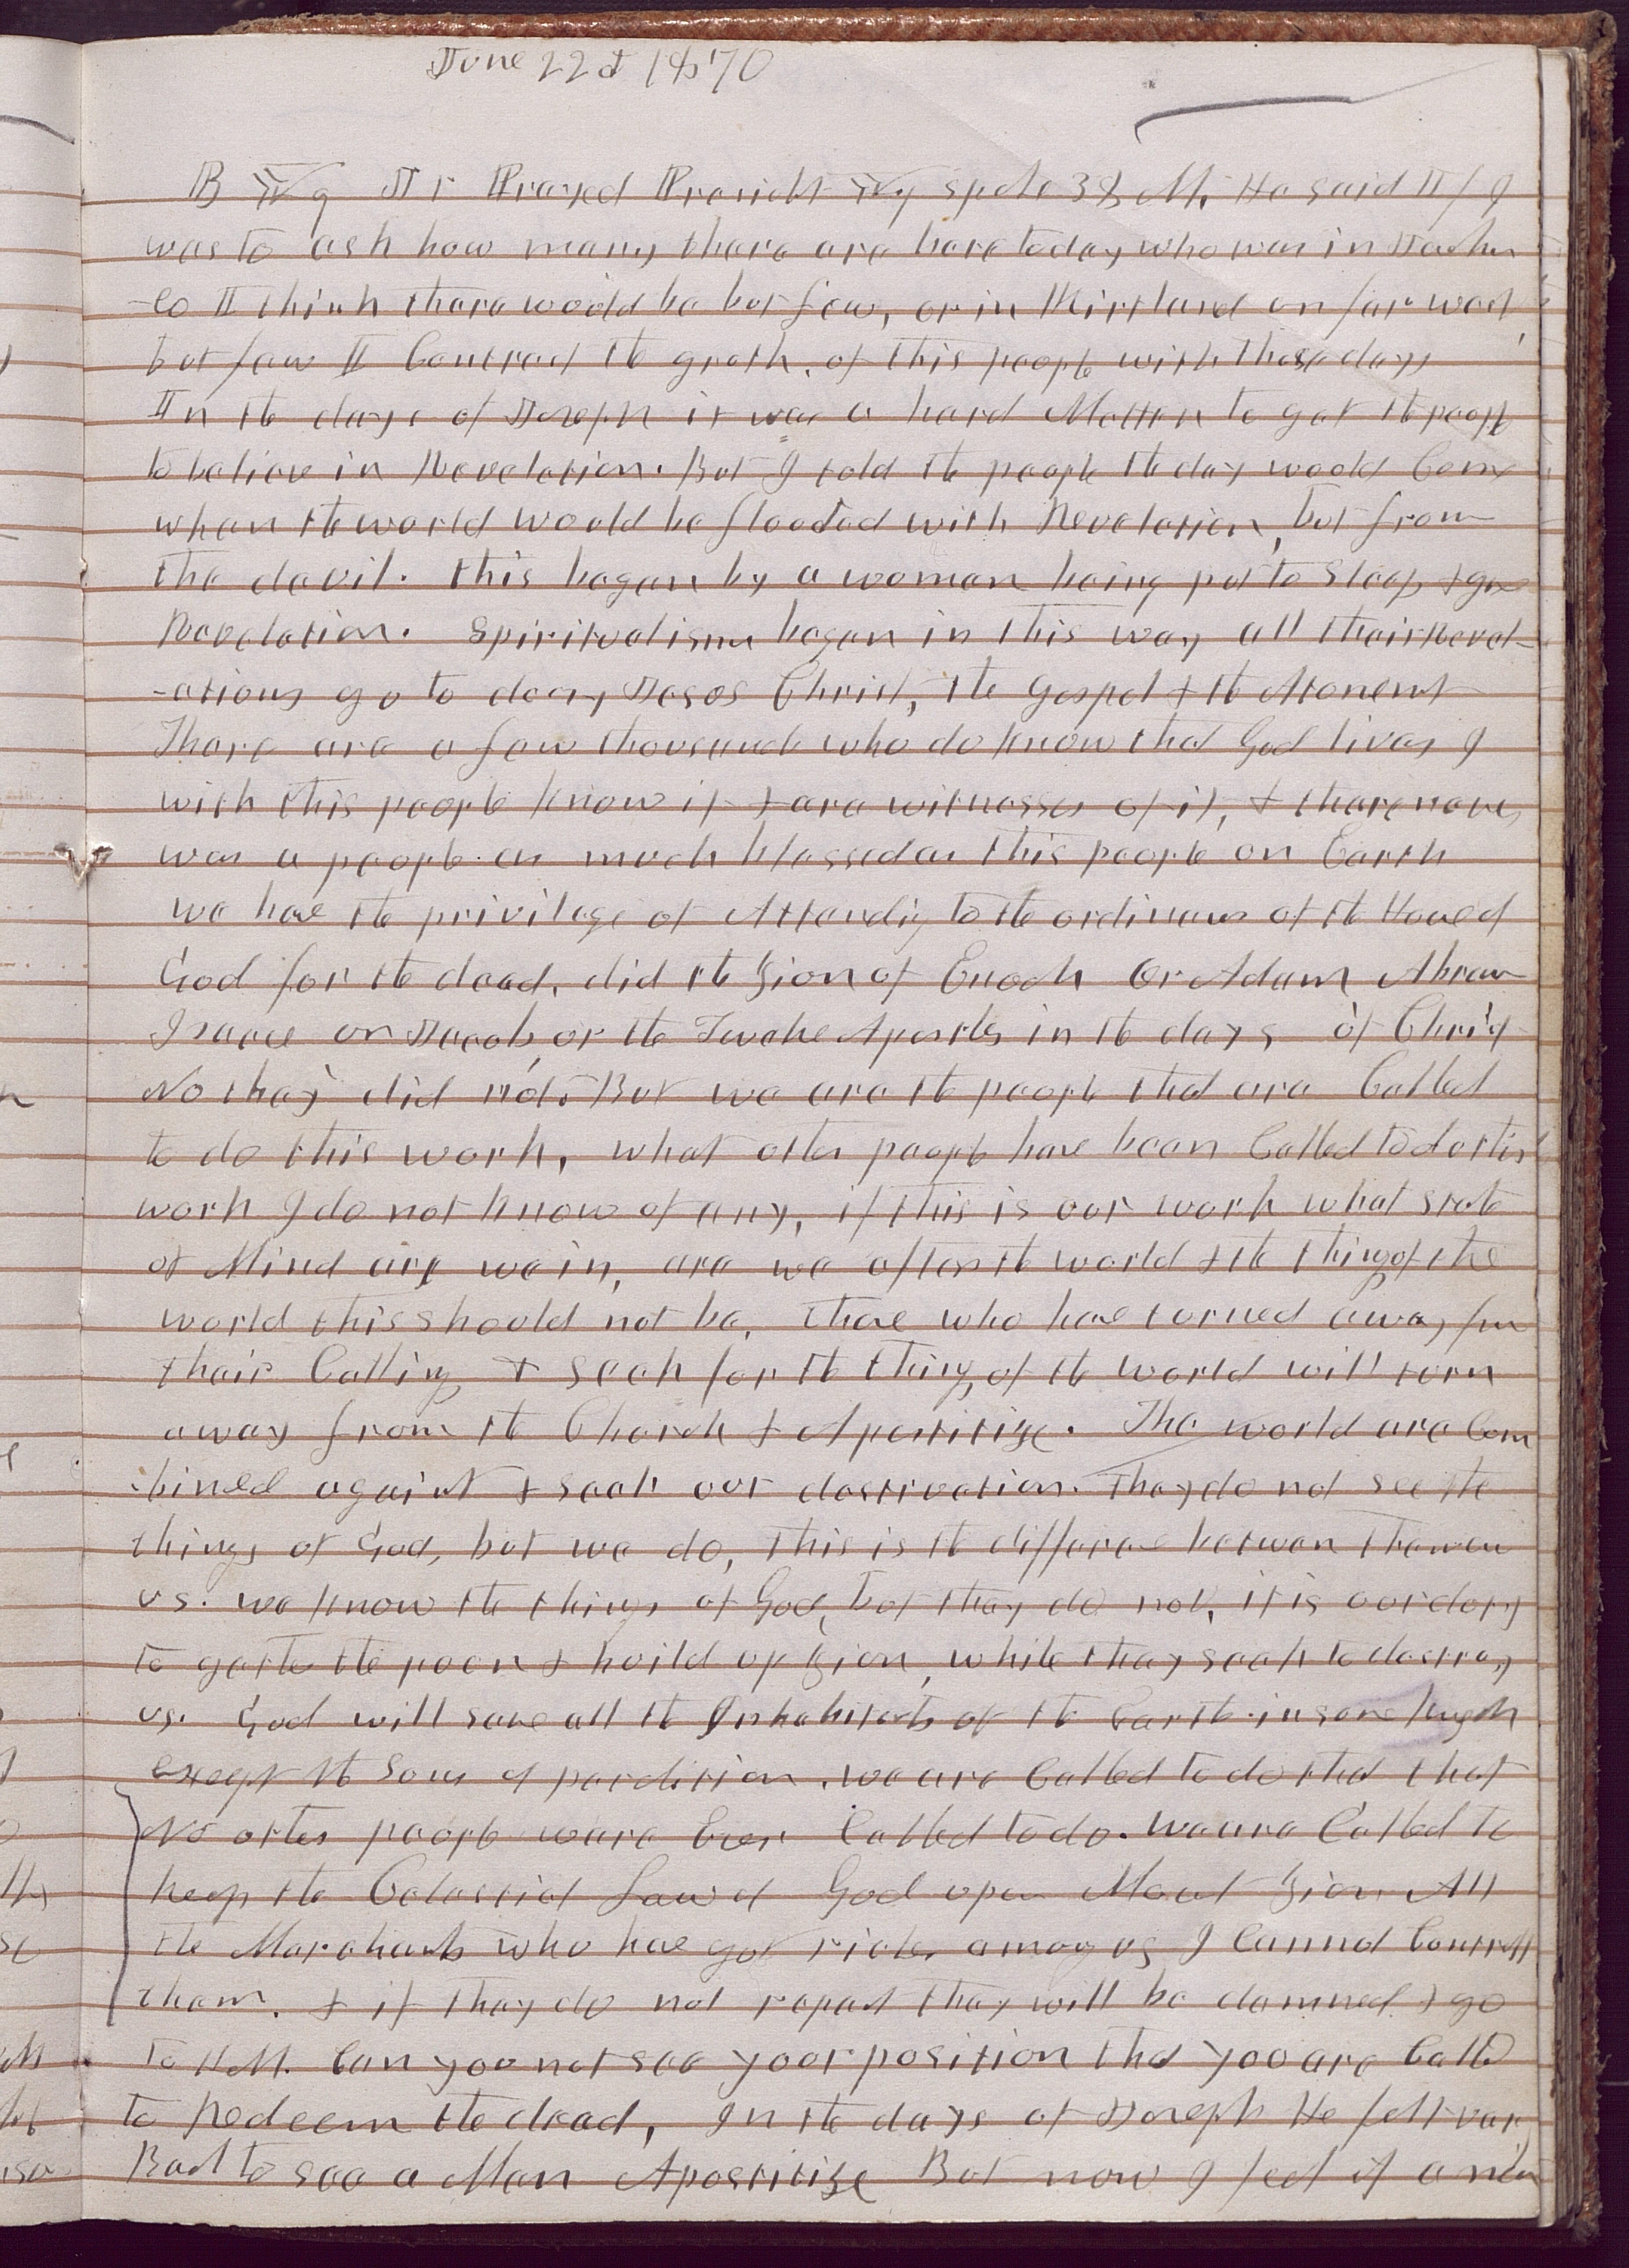 June 22d 1870
B Yg Jr Prayed President Yg spoke 38 M. He said If I
was to ask how many there are here today who was in Jackson
Co I think there would be but few, or in Kirtland or far west
but few I Contrast the groth, of this people with those days
In the days of Joseph it was a hard Matter to get the people
to believe in Revelation. But I told the people the day would Come
when the world would be flooded with Revelation, but from
the devil. this began by a woman being put to Sleep & give
Revelation. Spiritualism began in this way all their Revel-
-ations go to deny Jesus Christ, the Gospel & the Atonement
There are a few thousands who do know that God lives I
with this people know it & are witnesses of it, & there never
was a people as much blessed as this people on Earth
we have the privilege of Attending to the ordinances of the House of
God for the dead, did the Zion of Enoch Or Adam Abram
Isaac or Jacob, or the Twelve Apostles in the days of Christ
No they did not. But we are the people that are Called
to do this work, what other people have been Called to do this
work I do not know of any, if this is our work what state
of Mind are we in, are we after the world & the things of the
world this should not be, those who have turned away from
their Calling & Seek for the things of the world will turn
away from the Church & Apostitize. The world are Com
bined against & seek our destruction. They do not see the
things of God, but we do, this is the difference between them &
us. we know the things of God, but they do not, it is our duty
to gather the poor & build up Zion, while they seek to destroy
us. God will save all the Inhabitants of the Earth in some kingdom
except the Sons of perdition. we are Called to do that that
No other people were Ever Called to do. We are Called to
keep the Celestial Law of God upon Mount Zion. All
the Merchants who have got riches among us I cannot Controll
them. & if they do not repent they will be damned & go
to Hell. Can you not see your position that you are Called
to Redeem the dead, In the days of Joseph He felt very
Bad to see a Man Apostitize But now I feel if a man